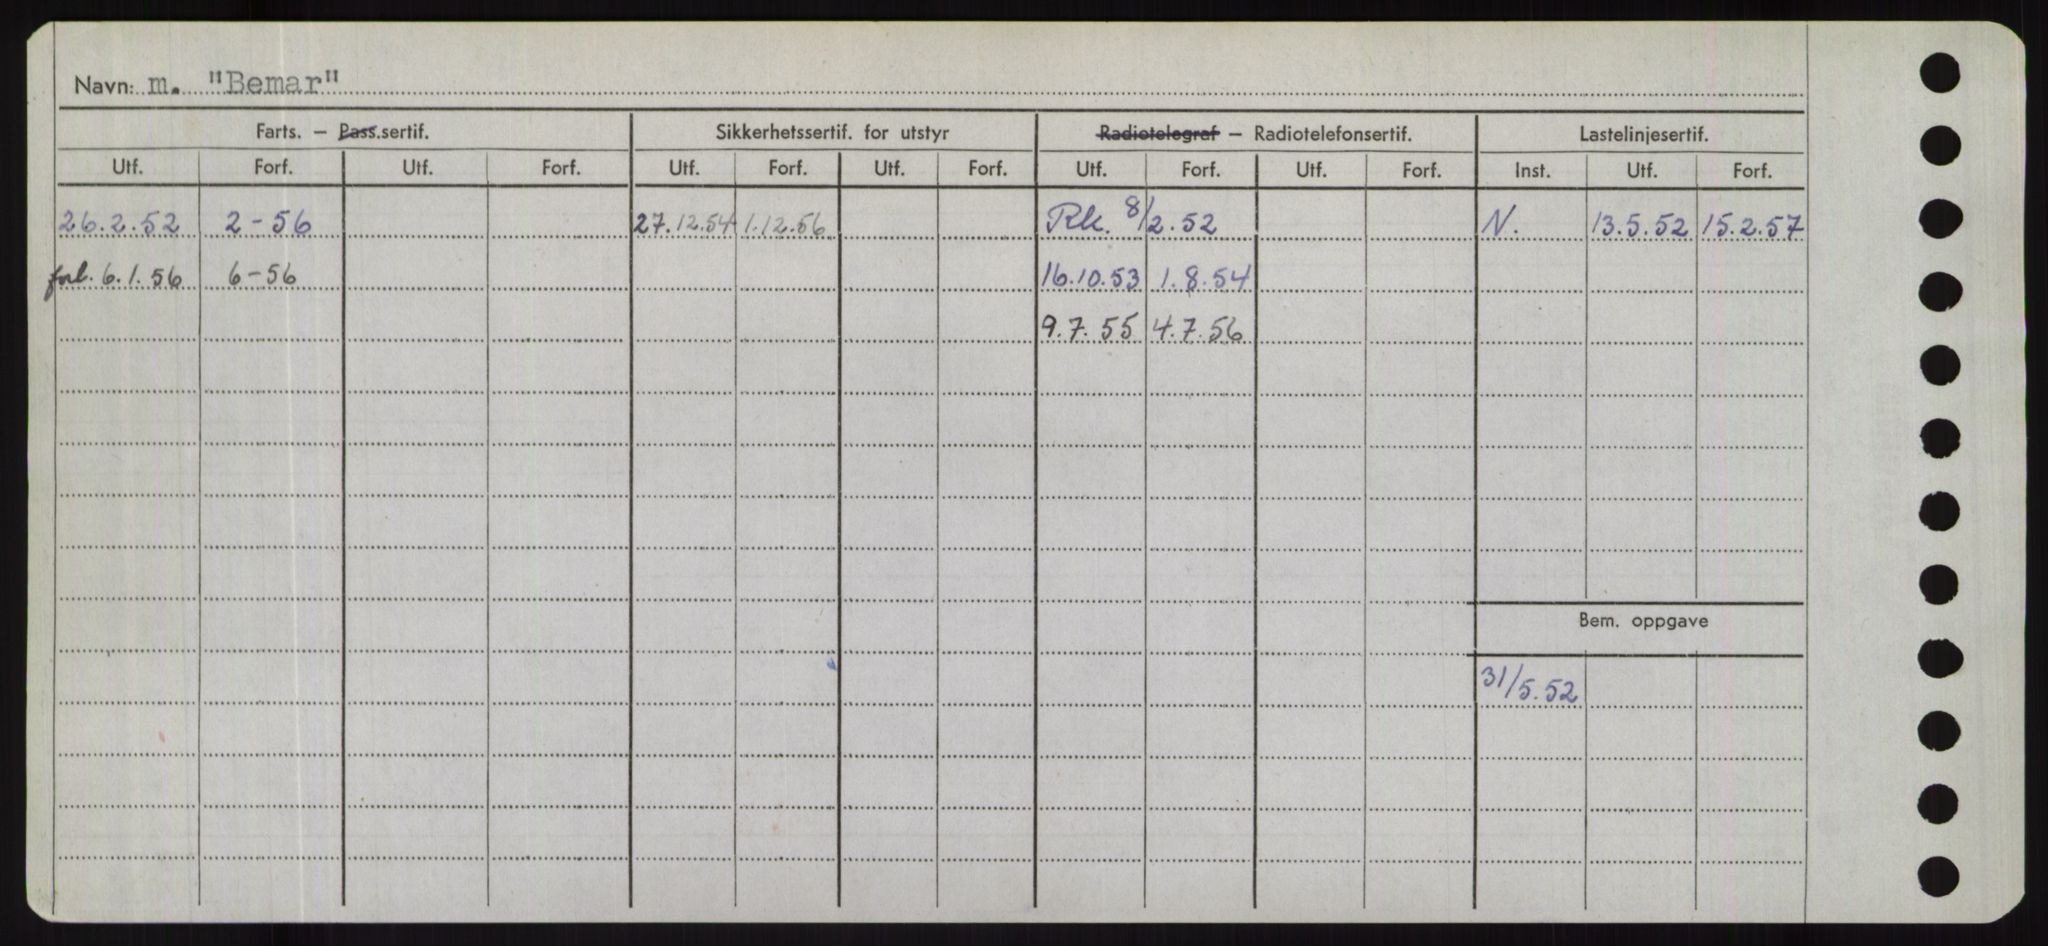 Navn: m. "Bemar"
Farts. – Pass.sertif. Sikkerhetssertif. for utstyr Radiotelegraf – Radiotelefonsertif. Lastelinjesertif.
Utf. Forf. Utf. Forf. Utf. Forf. Utf. Forf. Utf. Forf. Utf. Forf. Inst. Utf. Forf.
26.2.52 2-56 27.12.54 1.12.56 Rk. 8/2.52 N. 13.5.52 15.2.57
forl. 6.1.56 6-56 16.10.53 1.8.54
9.7.55 4.7.56
Bem. oppgave
31/5.52